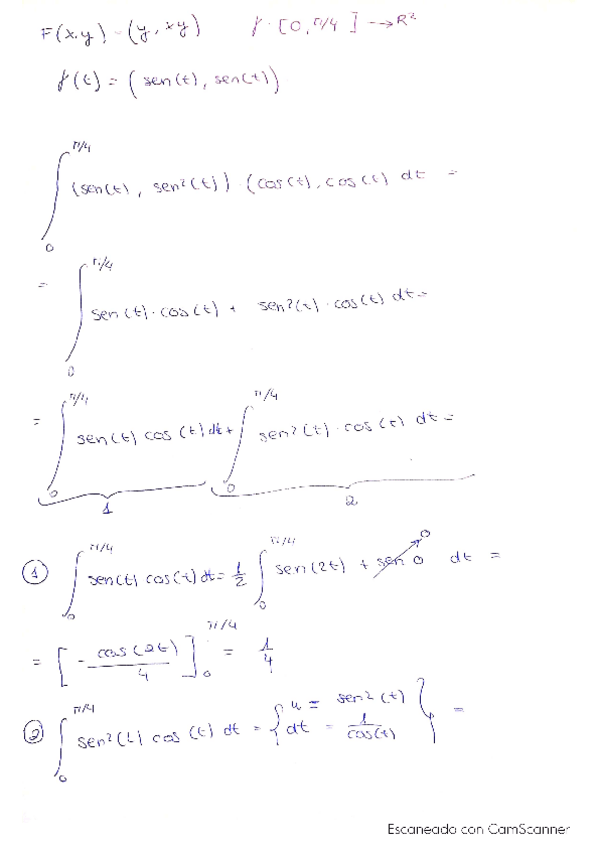 F(x,y) = (y, xy) γ: [0, π/4] → R²
γ(t) = (sen(t), sen(t))
∫₀^{π/4} (sen(t), sen²(t)) · (cos(t), cos(t) dt =
= ∫₀^{π/4} sen(t)·cos(t) + sen²(t)·cos(t) dt =
= ∫₀^{π/4} sen(t) cos(t) dt + ∫₀^{π/4} sen²(t)·cos(t) dt =
1 2
① ∫₀^{π/4} sen(t) cos(t) dt = 1/2 ∫₀^{π/4} sen(2t) + sen 0 → 0 dt =
= [- cos(2t)/4]₀^{π/4} = 1/4
② ∫₀^{π/4} sen²(t) cos(t) dt = { u = sen²(t)
dt = 1/cos(t) } =
Escaneado con CamScanner